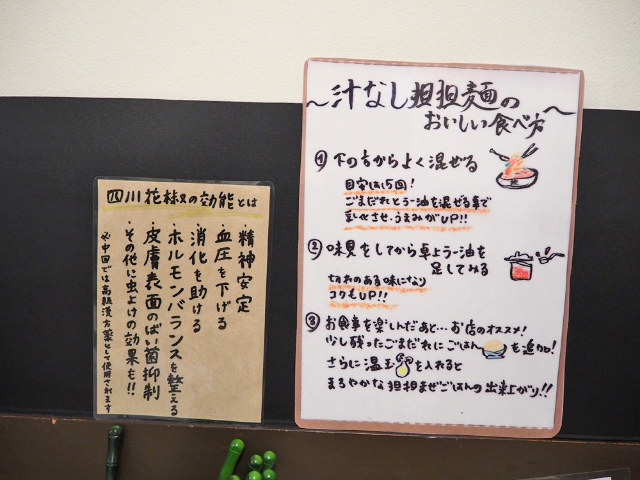 四川花椒の効能とは
・精神安定
・血圧を下げる
・消化を助ける
・ホルモンバランスを整える
・皮膚表面のばい菌抑制
・その他に虫よけの効果も!!
※中国では高級漢方薬として使用されます
～汁なし担担麺の～
おいしい食べ方
① 下の方からよく混ぜる
目安は15回!
ごまだれとラー油を混ぜる事で
乳化させ、うまみがUP!!
② 味見をしてから卓上ラー油を
足してみる
キレのある味になり
コクもUP!!
③ お食事を楽しんだあと…お店のオススメ!
少し残ったごまだれにごはんを追加!
さらに温玉を入れると
まろやかな担担まぜごはんの出来上がり!!